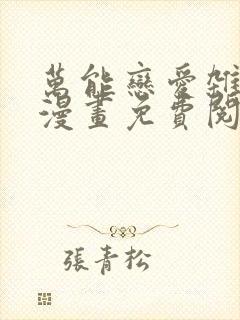 萬能戀愛雜
漫畫免費閱
張青松